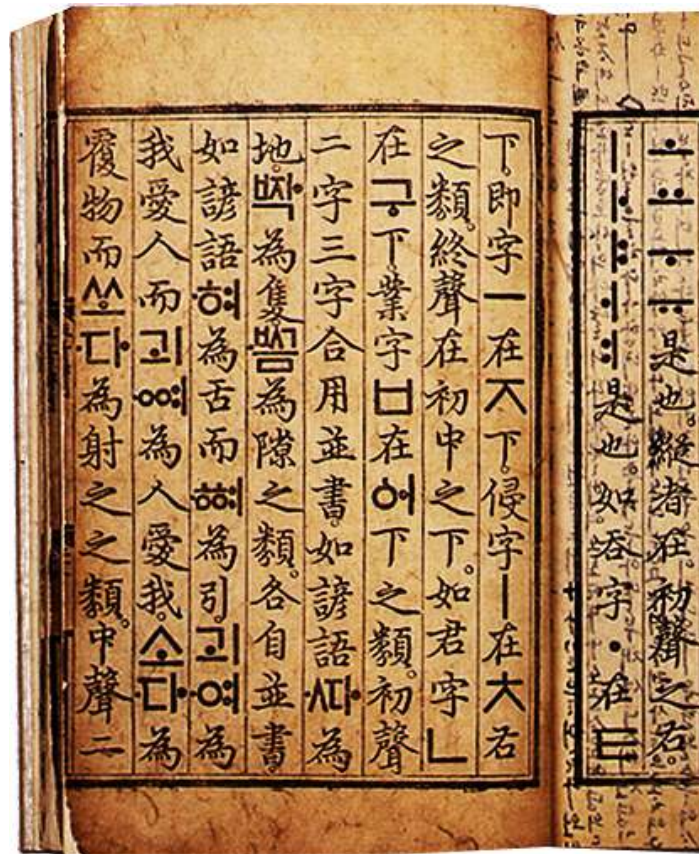 ㅗㅛㅜㅠ是也縱者在初聲之右。
ㅣㅏㅑㅓㅕ是也。如呑字ㆍ在ㅌ
下。即字ㅡ在ㅈ下。侵字ㅣ在ㅊ右
之類。終聲在初中之下。如君字ㄴ
在구下。業字ㅂ在ᅌᅥ下之類。初聲
二字三字合用並書。如諺語ᄯᅡ為
地。ᄧᅡᆨ為隻ᄢᅳᆷ為隙之類。各自並書
如諺語혀為舌而ᅘᅧ為引。괴여為
我愛人而괴ᅇᅧ為人愛我。소다為
覆物而쏘다為射之之類。中聲二